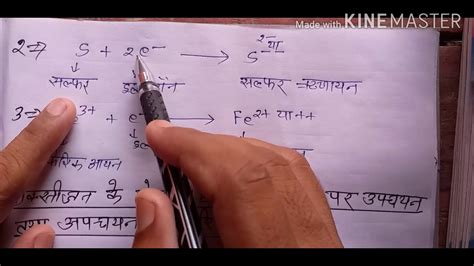 Made with KINEMASTER
2⇒ S + 2e⁻ → S²⁻ या
सल्फर इलेक्ट्रॉन सल्फर ऋणायन
3⇒ 3+ + e⁻ → Fe²⁺ या ++
आयन
के पर उपचयन
तथा अपचयन